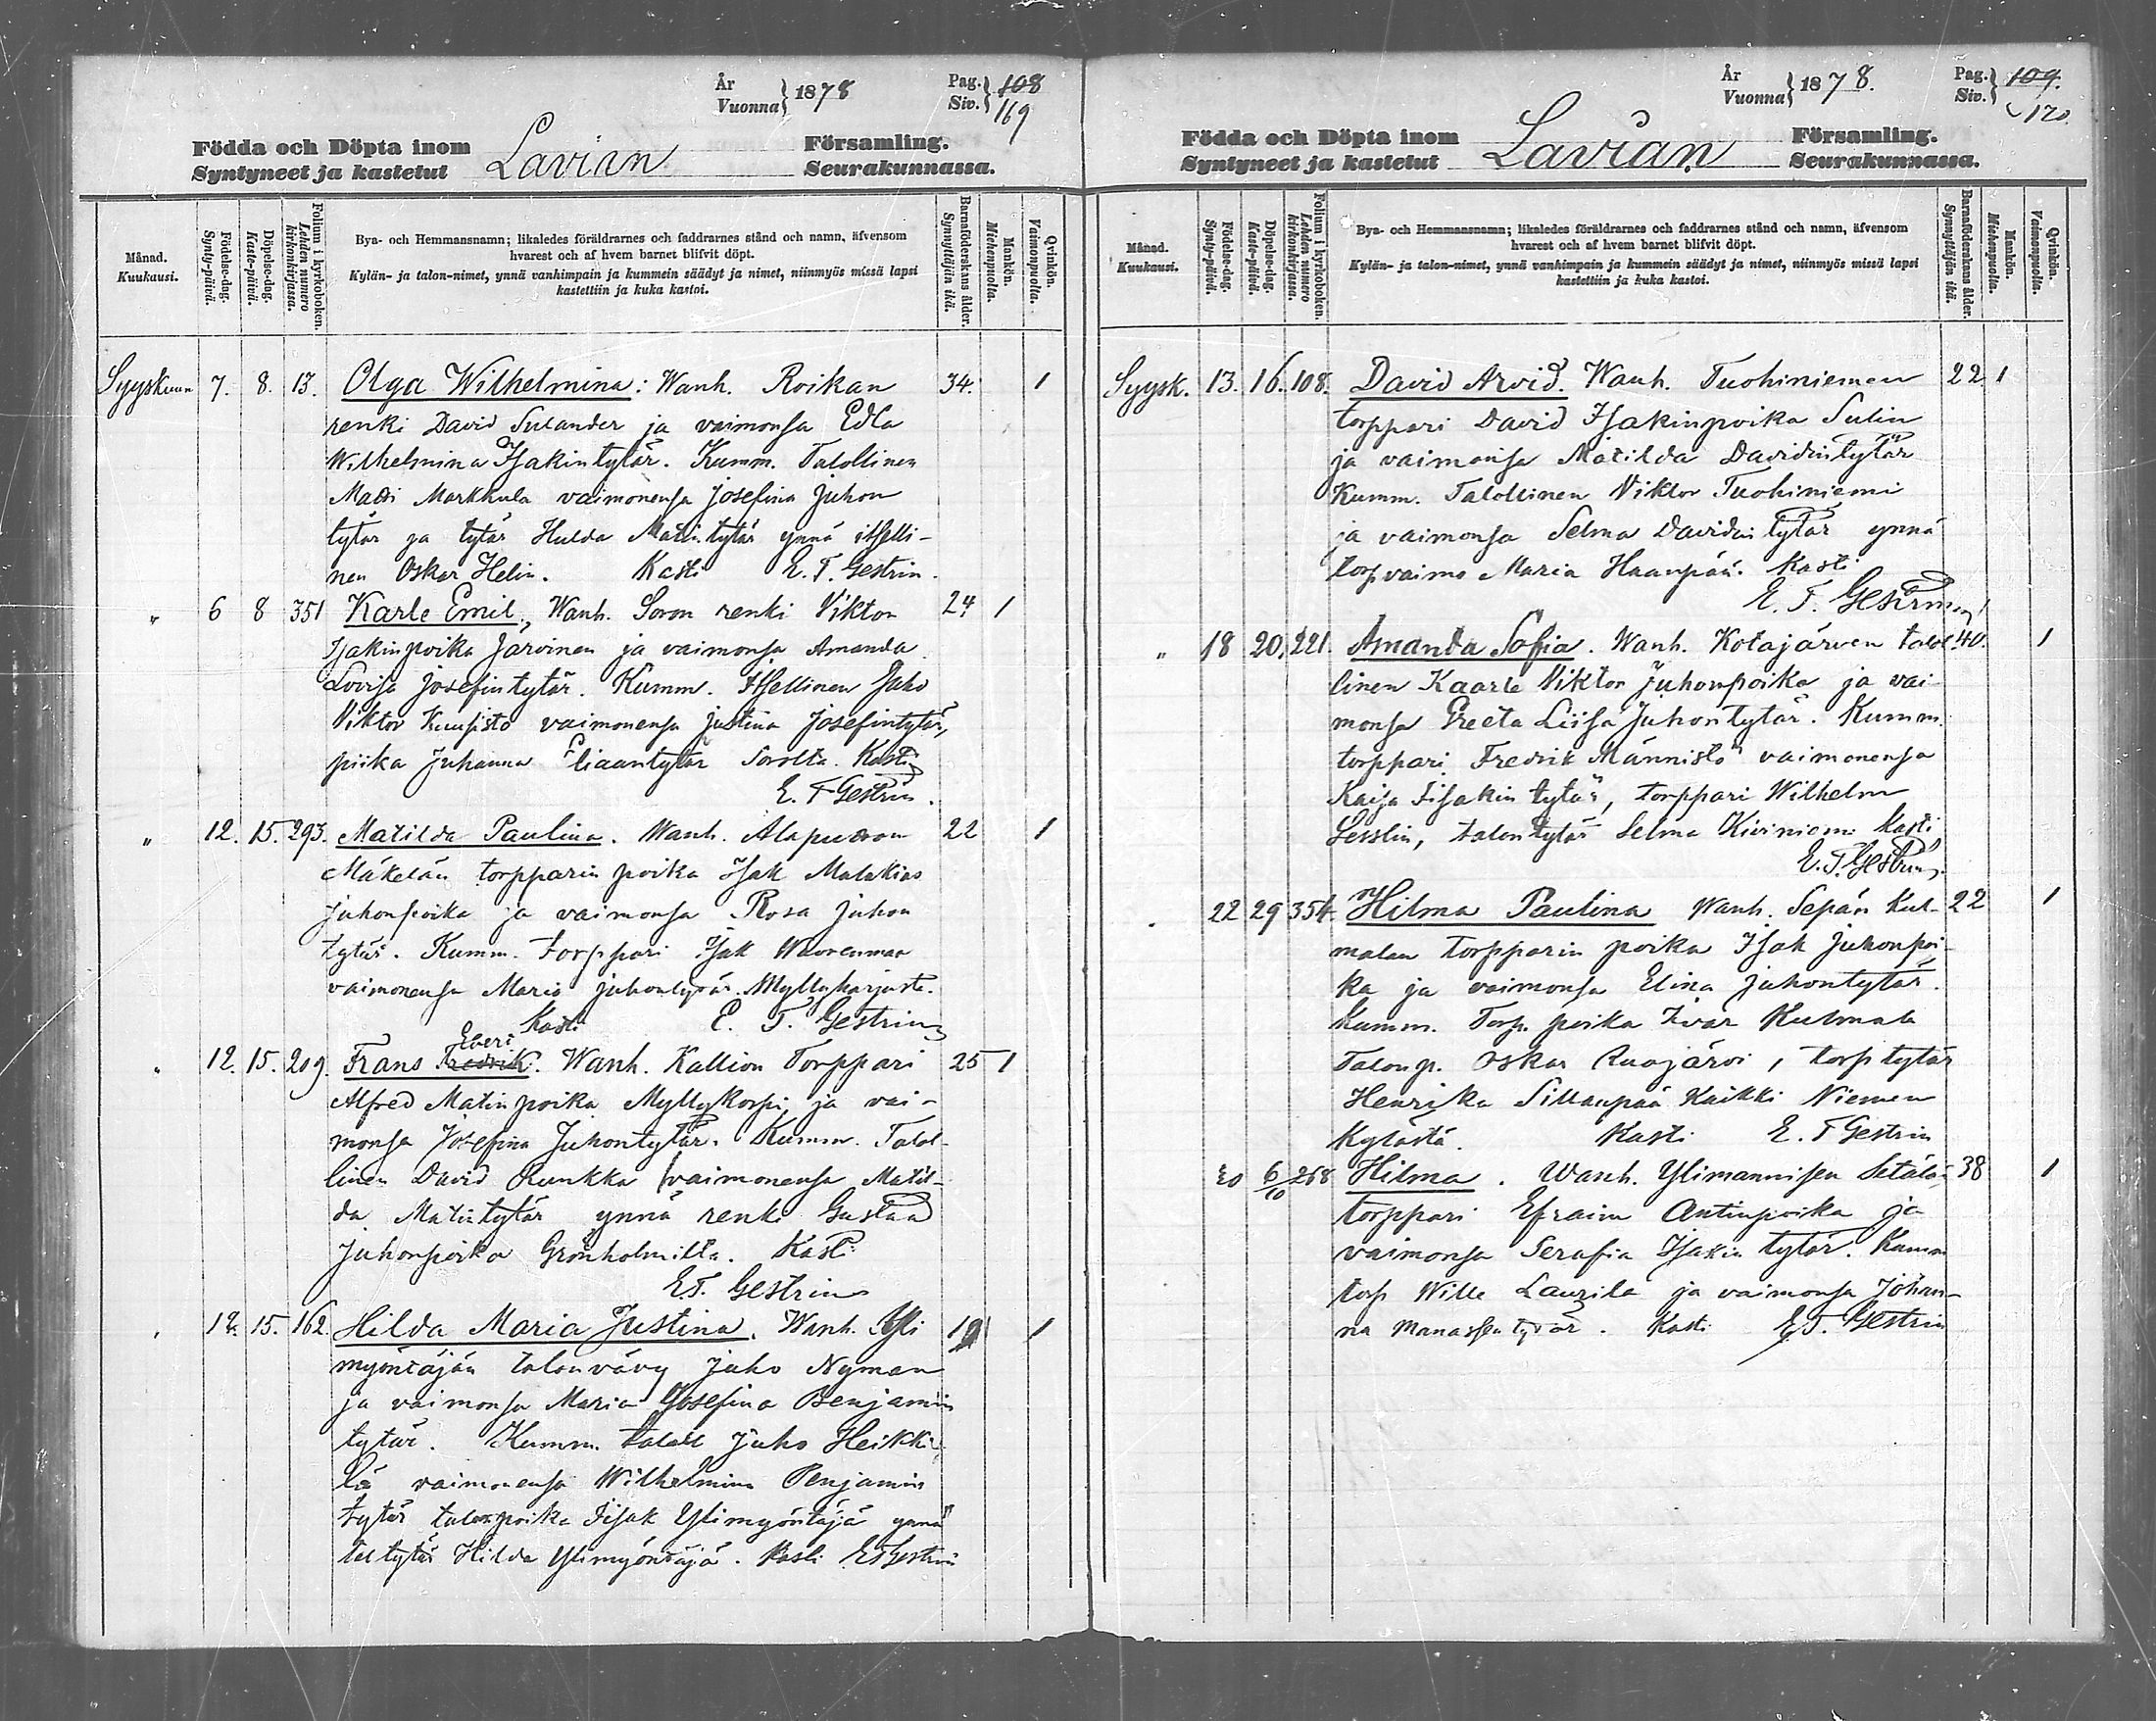 År
Vuonna } 1878
Pag.
Siv. } 108
169
Födda och Döpta inom
Syntyneet ja kastetut
Lavian
Församling.
Seurakunnassa.
Månad.
Kuukausi.
Födelse-dag.
Synty-päivä.
Döpelse-dag.
Kaste-päivä.
Folium i kyrkoboken.
Lehden numero kirkonkirjassa.
Bya- och Hemmansnamn; likaledes föräldrarnes och faddrarnes stånd och namn, äfvensom
hvarest och af hvem barnet blifvit döpt.
Kylän- ja talon-nimet, ynnä vanhimpain ja kummein säädyt ja nimet, niinmyös missä lapsi
kastettiin ja kuka kastoi.
Barnaföderskans ålder.
Synnyttäjän ikä.
Mankön.
Miehenpuolia.
Qvinkön.
Vaimonpuolia.
Syyskuun 7. 8. 13. Olga Wilhelmina: Wanh. Roikan 34. 1
renki David Sulander ja vaimonsa Edla
Wilhelmina Isakintytär. Kumm. Talollinen
Matti Markkula vaimonensa Josefina Juhon
tytär ja tytär Hulda Matintytär ynnä itselli-
nen Oskar Helin. Kasti E. F. Gestrin.
" 6 8 351 Karle Emil, Wanh. Soron renki Viktor 24 1
Isakinpoika Järvinen ja vaimonsa Amanda
Lovisa Josefintytär. Kumm. Itsellinen Juho
Viktor Kuusisto vaimonensa Justina Josefintytär,
piika Juhanna Eliaantytär Sorolta. Kasti
E. F Gestrin.
" 12. 15. 293. Matilda Paulina. Wanh. Alapudron 22 1
Mäkelän torpparin poika Isak Malakias
Juhonpoika ja vaimonsa Rosa Juhon
tytär. Kumm. torppari Isak Wuorenmaa
vaimonensa Maria Juhontytär. Myllyharjusta.
Kasti E. F. Gestrin
Everi
" 12. 15. 209. Frans Fredrik. Wanh. Kallion Torppari 25 1
Alfred Matinpoika Myllykorpi, ja vai-
monsa Josefina Juhontytär. Kumm. Talol-
linen David Runkka vaimonensa Matil-
da Matintytär ynnä renki Gustaa
Juhonpoika Grönholmilta. Kasti
E.F. Gestrin
" 12. 15. 162. Hilda Maria Justina. Wanh. Yli 19 1
myöntäjän talonvävy Juho Nyman
ja vaimonsa Maria Josefina Benjamin
tytär. Kumm. talol Juho Heikki-
lä vaimonensa Wilhelmina Benjamin
tytär talonpoika Iisak Ylimyöntäjä ynnä
tal tytär Hilda Ylimyöntäjä. Kasti EFGestrin
År
Vuonna } 1878.
Pag.
Siv. } 109.
170.
Födda och Döpta inom
Syntyneet ja kastetut
Lavian
Församling.
Seurakunnassa.
Månad.
Kuukausi.
Födelse-dag.
Synty-päivä.
Döpelse-dag.
Kaste-päivä.
Folium i kyrkoboken.
Lehden numero kirkonkirjassa.
Bya- och Hemmansnamn; likaledes föräldrarnes och faddrarnes stånd och namn, äfvensom
hvarest och af hvem barnet blifvit döpt.
Kylän- ja talon-nimet, ynnä vanhimpain ja kummein säädyt ja nimet, niinmyös missä lapsi
kastettiin ja kuka kastoi.
Barnaföderskans ålder.
Synnyttäjän ikä.
Mankön.
Miehenpuolia.
Qvinkön.
Vaimonpuolia.
Syysk. 13. 16. 108. David Arvid. Wanh. Tuohiniemen 22 1
torppari David Isakinpoika Sulin
ja vaimonsa Matilda Davidintytär
Kumm. Talollinen Viktor Tuohiniemi
ja vaimonsa Selma Davidintytär ynnä
torp vaimo Maria Haanpää. Kasti
E. F. Gestrin
" 18 20. 221. Amanda Sofia. Wanh. Kotajärven talol- 40. 1
linen Kaarle Viktor Juhonpoika ja vai-
monsa Greeta Liisa Juhontytär. Kumm.
torppari Fredrik Männistö vaimonensa
Kaisa Iisakin tytär, torppari Wilhelm
Sesslin, talontytär Selma Kiviniemi Kasti
E. F. Gestrin.
" 22 29 354. Hilma Paulina Wanh. Sepän Kul- 22 1
malan torpparin poika Isak Juhonpoi-
ka ja vaimonsa Elina Juhontytär.
Kumm. Torp. poika Ivar Kulmala
Talonp. Oskar Ruojärvi, torp tytär
Henrika Sillanpää Kaikki Niemen
kylästä. Kasti E. F Gestrin
30 6/10 268 Hilma. Wanh. Ylimannisen Setälä- 38 1
torppari Efraim Antinpoika ja
vaimonsa Serafia Isakin tytär. Kumm
torp Wille Laurila ja vaimonsa Johan-
na Manassentytär. Kasti E.F. Gestrin